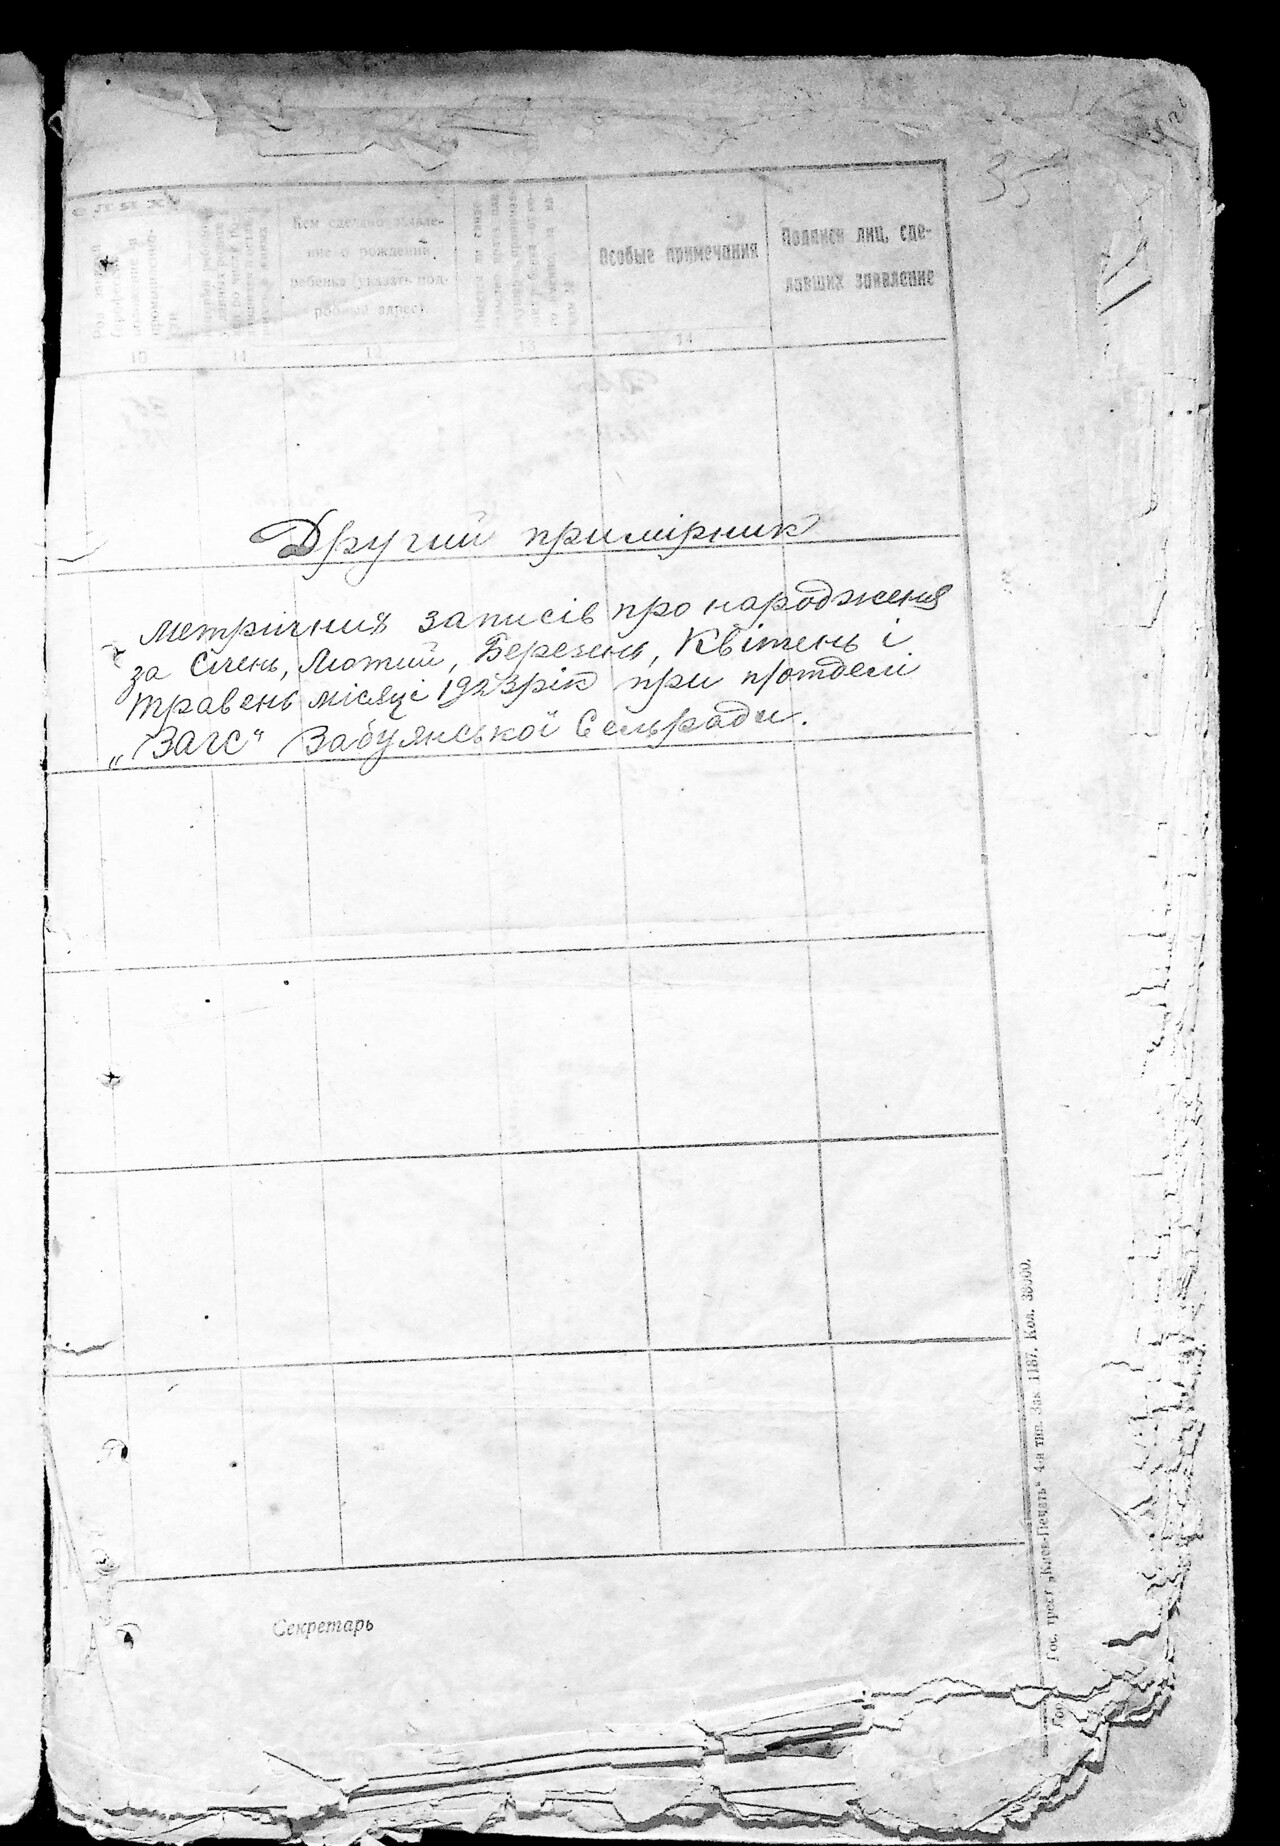 35
Кем сделано заявле-
ние о рождении
ребенка (указать под-
робный адрес).
Особые примечания
Подписи лиц, сде-
лавших заявление
10 11 12 13 14
Другий примірник
метричних записів про народження
за Січень, Лютий, Березень, Квітень і
травень місяці 1923 рік при п/отделі
„ЗАГС“ Забуянської Сельради.
Секретарь
Гос. трест „Киев-Печать“ 4-я тип. Зак. 1187. Кол. 38000.